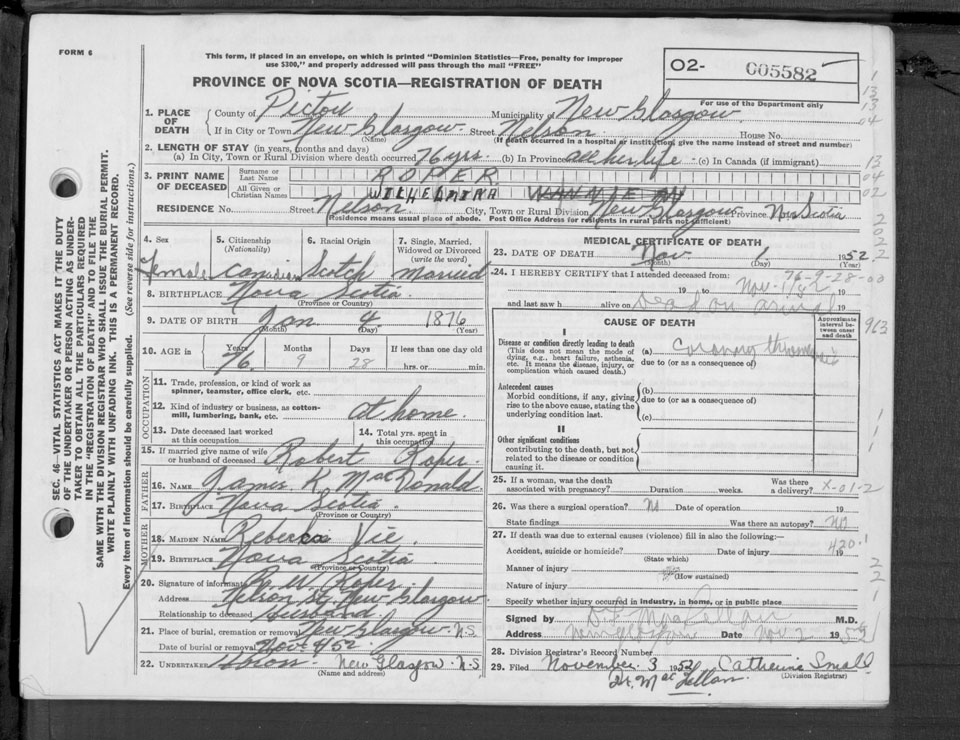 FORM 6
This form, if placed in an envelope, on which is printed "Dominion Statistics—Free, penalty for improper
use $300," and properly addressed will pass through the mail "FREE"
PROVINCE OF NOVA SCOTIA—REGISTRATION OF DEATH
O2- 005582
For use of the Department only
1. PLACE OF DEATH
County of Pictou Municipality of New Glasgow
If in City or Town New Glasgow (Name) Street Nelson House No.
(If death occurred in a hospital or institution, give the name instead of street and number)
2. LENGTH OF STAY (in years, months and days)
(a) In City, Town or Rural Division where death occurred 76 yrs. (b) In Province all her life (c) In Canada (if immigrant)
3. PRINT NAME OF DECEASED
Surname or Last Name ROPER
All Given or Christian Names WILHELMINA
RESIDENCE No. Street Nelson City, Town or Rural Division New Glasgow Province Nova Scotia
(Residence means usual place of abode. Post Office Address for residents in rural parts not sufficient)
4. Sex female
5. Citizenship (Nationality) Canadian
6. Racial Origin Scotch
7. Single, Married, Widowed or Divorced (write the word) married
8. BIRTHPLACE Nova Scotia
(Province or Country)
9. DATE OF BIRTH Jan 4 1876
(Month) (Day) (Year)
10. AGE in Years 76 Months 9 Days 28 If less than one day old hrs. or min.
OCCUPATION
11. Trade, profession, or kind of work as
spinner, teamster, office clerk, etc.
12. Kind of industry or business, as cotton-
mill, lumbering, bank, etc. at home
13. Date deceased last worked at this occupation
14. Total yrs. spent in this occupation
15. If married give name of wife or husband of deceased Robert Roper
FATHER
16. NAME James R MacDonald
17. BIRTHPLACE Nova Scotia
(Province or Country)
MOTHER
18. MAIDEN NAME Rebecca
19. BIRTHPLACE Nova Scotia
(Province or Country)
20. Signature of informant W. Roper
Address Nelson St New Glasgow
Relationship to deceased Husband
21. Place of burial, cremation or removal New Glasgow N.S.
Date of burial or removal Nov. 4 52
22. UNDERTAKER New Glasgow N.S.
(Name and address)
MEDICAL CERTIFICATE OF DEATH
23. DATE OF DEATH Nov 1 1952
(Month) (Day) (Year)
24. I HEREBY CERTIFY that I attended deceased from:
19 to Nov. 1 19
76-9-28-00
and last saw h alive on Dead on arrival 19
CAUSE OF DEATH
Approximate interval between onset and death
I
Disease or condition directly leading to death
(This does not mean the mode of
dying, e.g., heart failure, asthenia,
etc. It means the disease, injury, or
complication which caused death.)
(a) Coronary thrombosis
due to (or as a consequence of)
Antecedent causes
Morbid conditions, if any, giving
rise to the above cause, stating the
underlying condition last.
(b)
due to (or as a consequence of)
(c)
II
Other significant conditions
contributing to the death, but not
related to the disease or condition
causing it.
25. If a woman, was the death associated with pregnancy? Duration weeks. Was there a delivery? X-01-2
26. Was there a surgical operation? No Date of operation 19
State findings Was there an autopsy? No
27. If death was due to external causes (violence) fill in also the following:—
420.1
Accident, suicide or homicide? (State which) Date of injury 19
Manner of injury
(How sustained)
Nature of injury
Specify whether injury occurred in industry, in home, or in public place
Signed by M.D.
Address New Glasgow Date Nov 2 19
28. Division Registrar's Record Number
29. Filed November 3 1952 Catherine Small
(Division Registrar)
Dr. MacLellan
SEC. 46—VITAL STATISTICS ACT MAKES IT THE DUTY
OF THE UNDERTAKER OR PERSON ACTING AS UNDER-
TAKER TO OBTAIN ALL THE PARTICULARS REQUIRED
IN THE "REGISTRATION OF DEATH" AND TO FILE THE
SAME WITH THE DIVISION REGISTRAR WHO SHALL ISSUE THE BURIAL PERMIT.
WRITE PLAINLY WITH UNFADING INK. THIS IS A PERMANENT RECORD.
Every item of information should be carefully supplied. (See reverse side for instructions.)
1
13
13
04
13
04
02
2
202
2
963
1
1
2
2
1